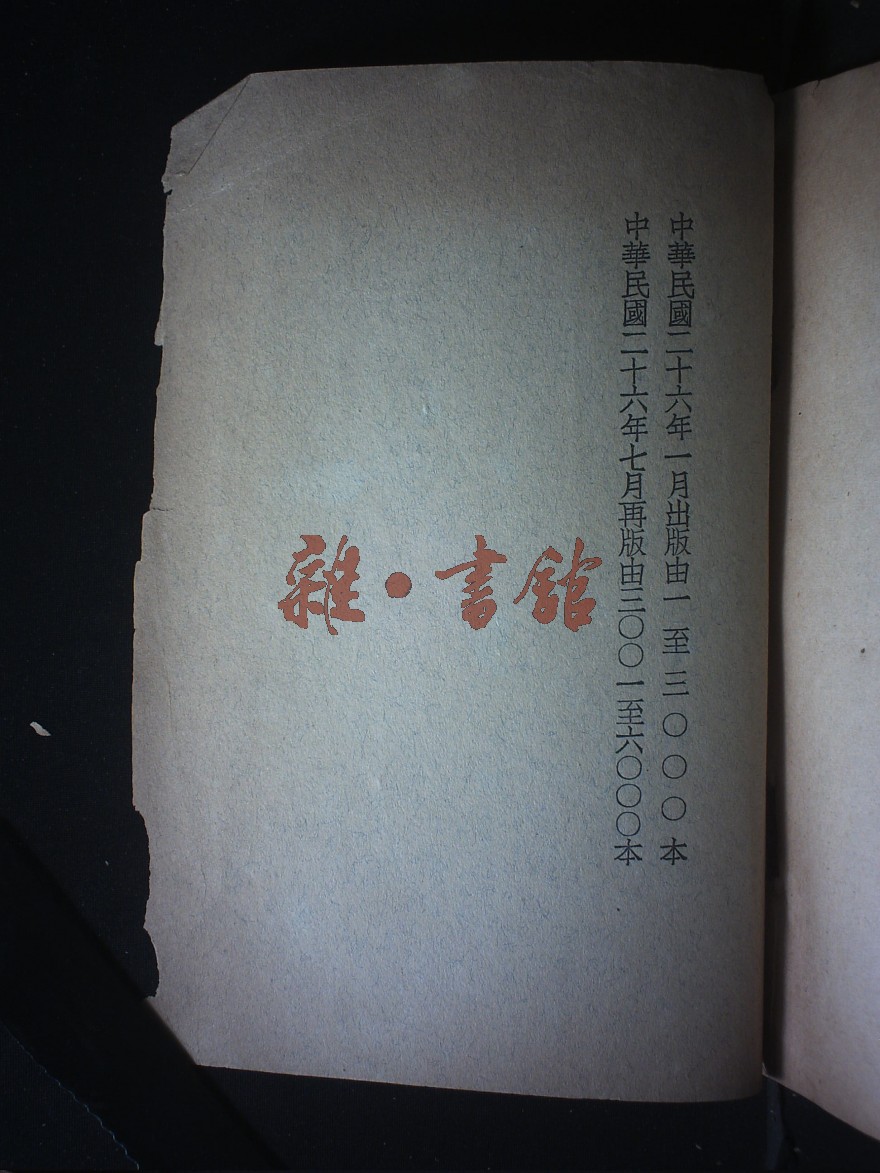 中華民國二十六年一月出版由一至三〇〇〇本
中華民國二十六年七月再版由三〇〇一至六〇〇〇本
雜·書館